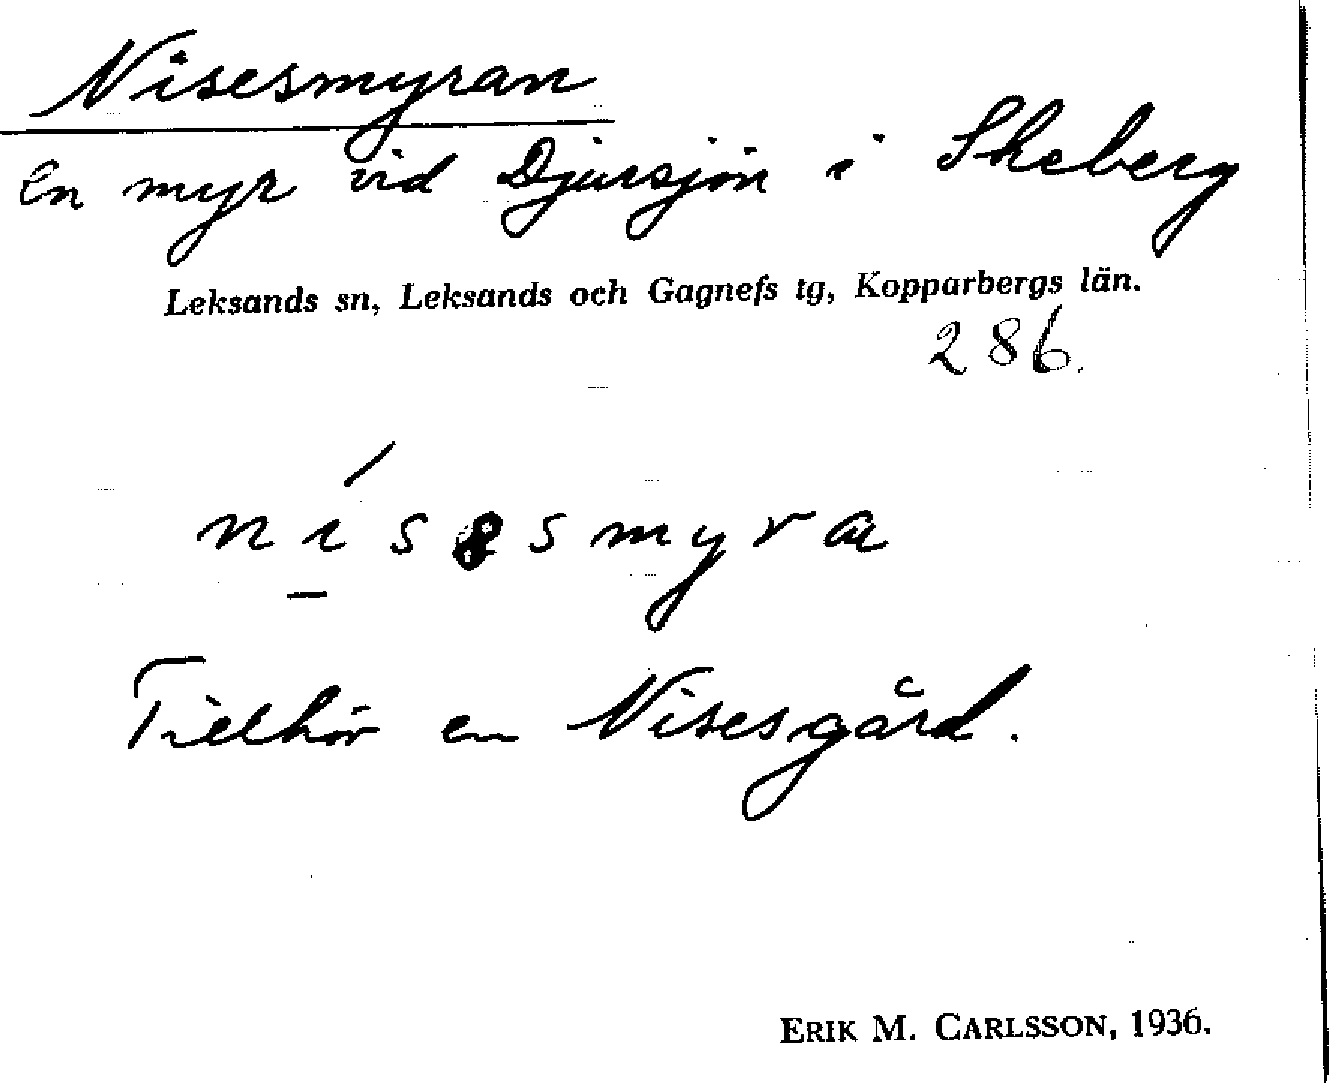 Nisesmyran
en myr vid Djursjön i Skeberg
Leksands sn, Leksands och Gagnefs tg, Kopparbergs län.
286.
nísesmyra
Tillhör en Nisesgård.
ERIK M. CARLSSON, 1936.